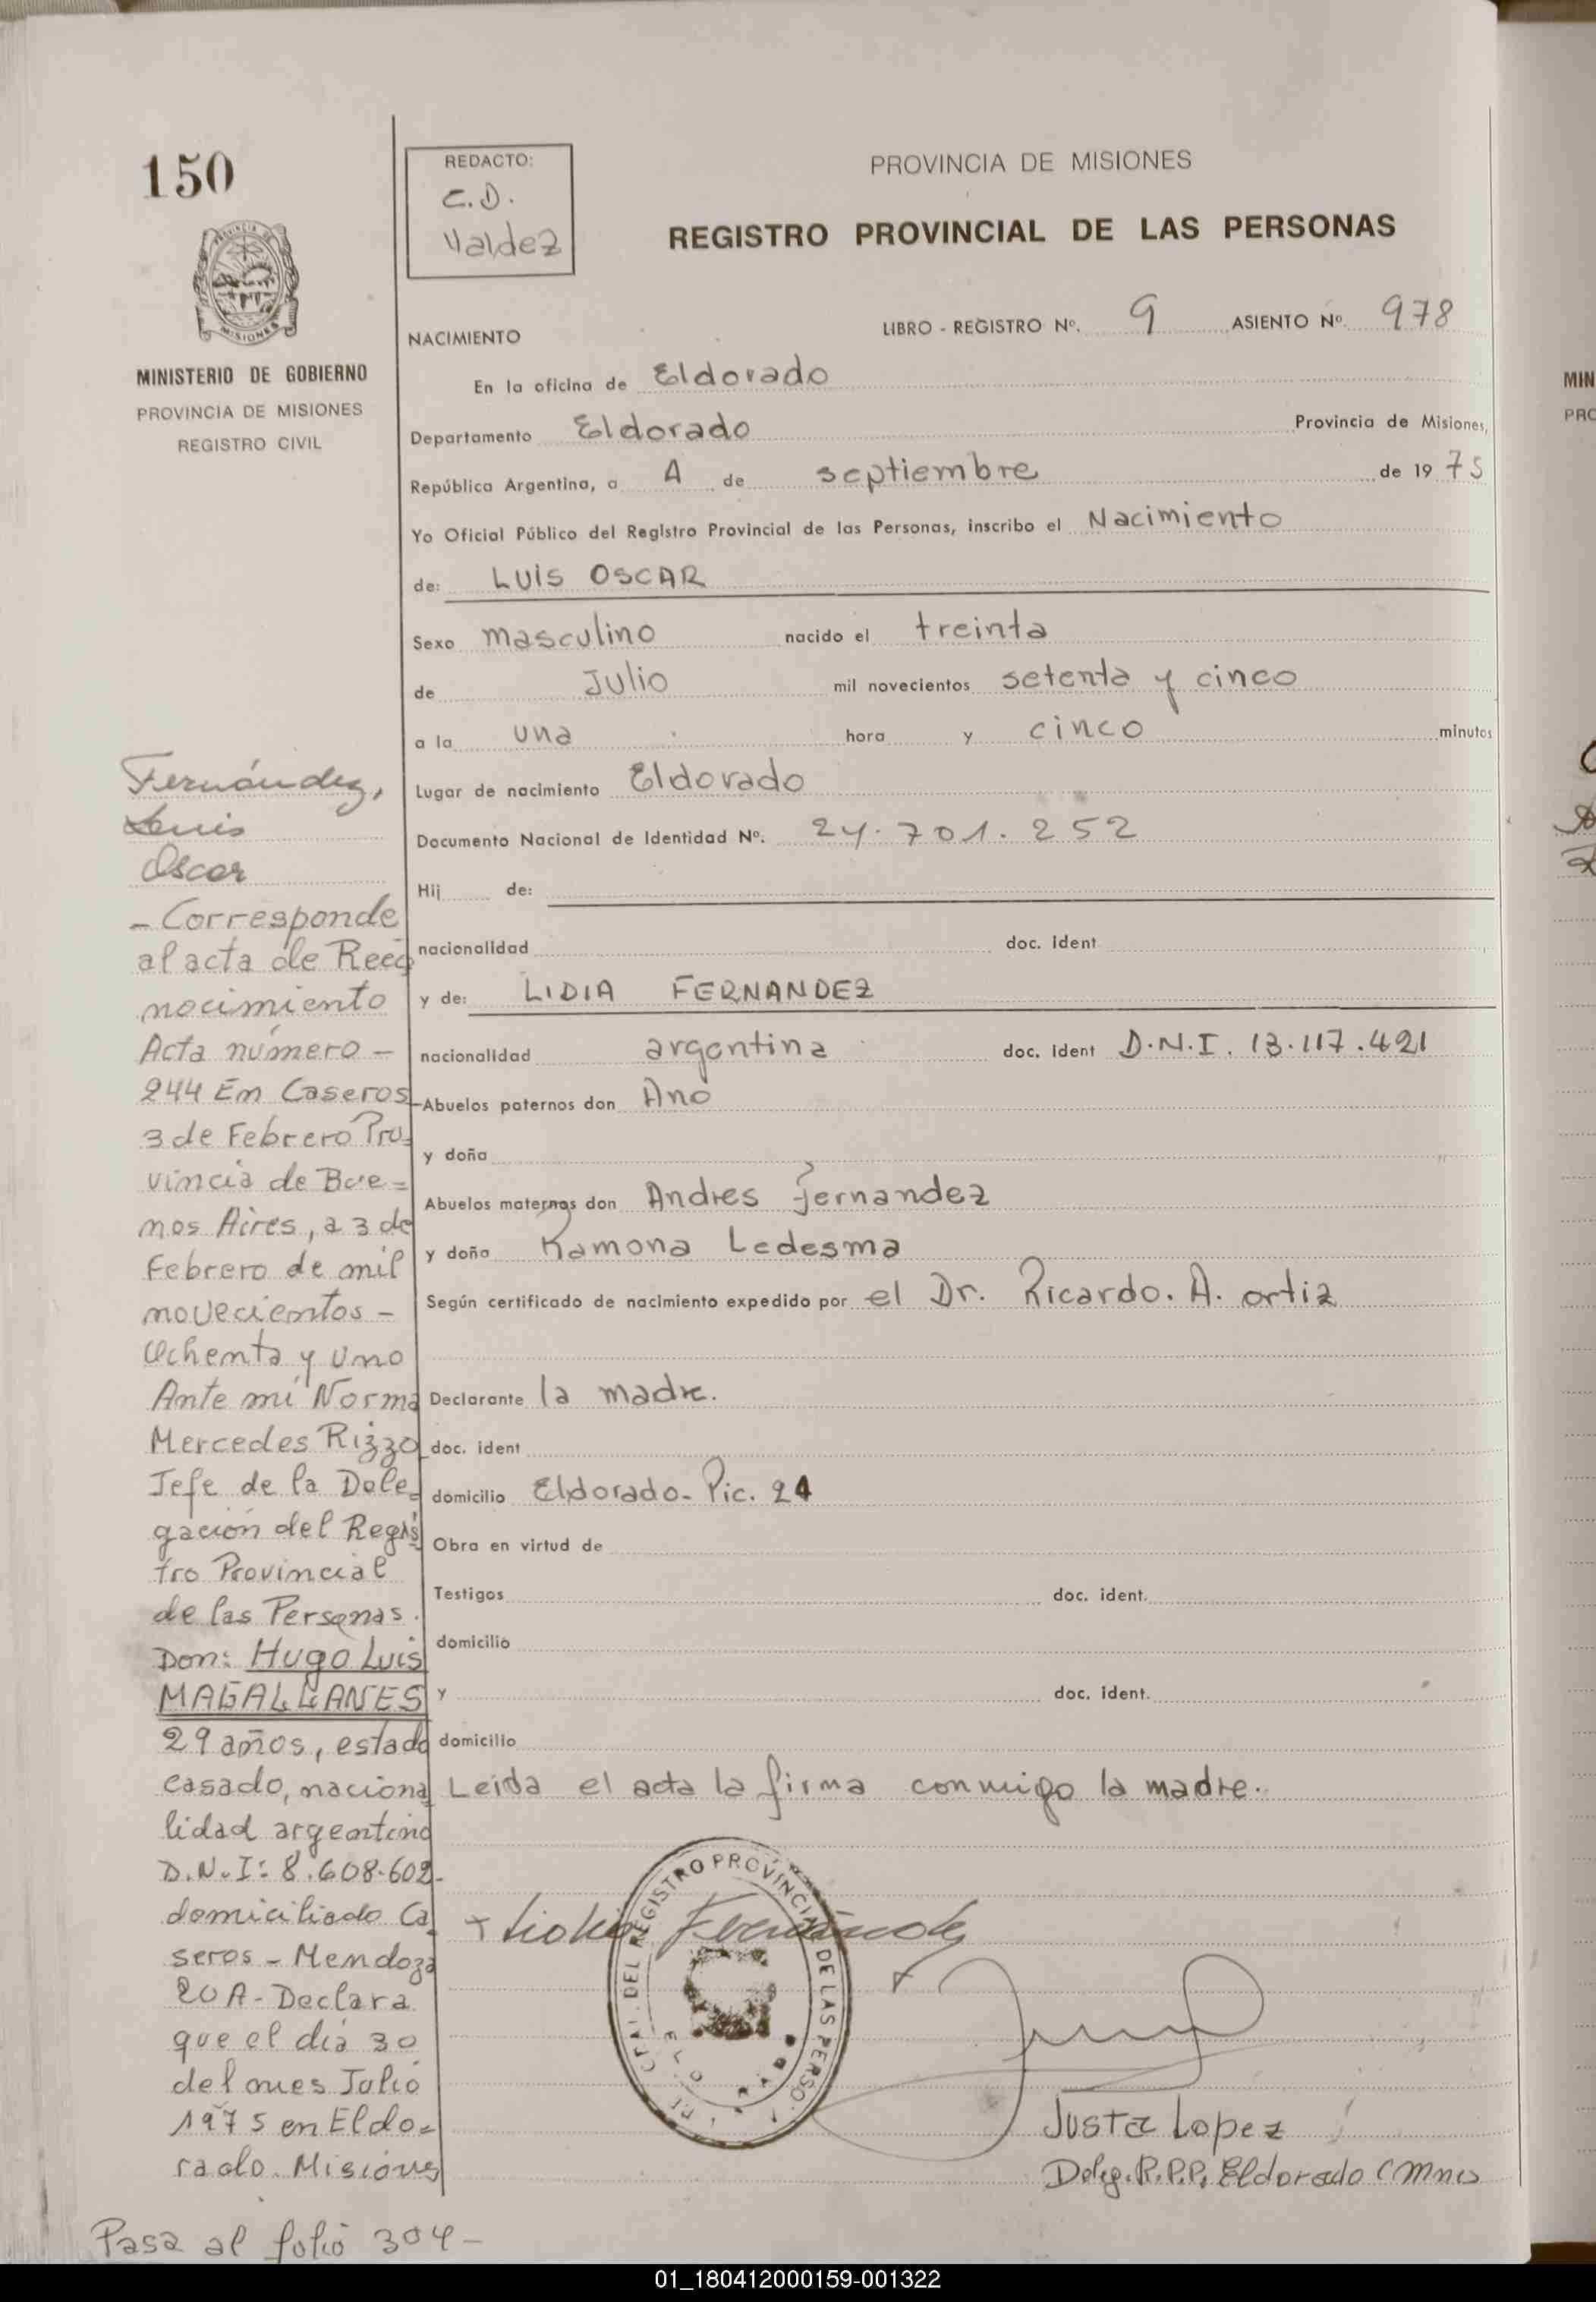 150
REDACTO:
C.D.
Valdez
PROVINCIA DE MISIONES
REGISTRO PROVINCIAL DE LAS PERSONAS
MISIONES
MINISTERIO DE GOBIERNO
PROVINCIA DE MISIONES
REGISTRO CIVIL
LIBRO - REGISTRO Nº. 9 ASIENTO Nº. 978
NACIMIENTO
En la oficina de Eldorado
Departamento Eldorado Provincia de Misiones,
República Argentina, a 4 de septiembre de 1975
Yo Oficial Público del Registro Provincial de las Personas, inscribo el Nacimiento
de: LUIS OSCAR
Sexo masculino nacido el treinta
de Julio mil novecientos setenta y cinco
a la una hora y cinco minutos
Lugar de nacimiento Eldorado
Documento Nacional de Identidad Nº. 24.701.252
Hij de:
nacionalidad doc. ident
y de: LIDIA FERNANDEZ
nacionalidad argentina doc. ident D.N.I. 13.117.421
Abuelos paternos don
y doña
Abuelos maternos don Andres Fernandez
y doña Ramona Ledesma
Según certificado de nacimiento expedido por el Dr. Ricardo. A. ortiz
Declarante la madre.
doc. ident
domicilio Eldorado- Pic. 24
Obra en virtud de
Testigos doc. ident.
domicilio
y doc. ident.
domicilio
Leida el acta la firma conmigo la madre.
Lidia Fernández
DEL REGISTRO PROVINCIAL DE LAS PERSO
Justa Lopez
Deleg. R.P.P. Eldorado (Mnes
Fernández,
Luis
Oscar
- Corresponde
al acta de Reco
nocimiento
Acta número -
244 En Caseros
3 de Febrero Pro=
vincia de Bue=
nos Aires, a 3 de
Febrero de mil
novecientos -
Ochenta y uno
Ante mí Norma
Mercedes Rizzo
Jefe de la Dele=
gación del Regis
tro Provincial
de las Personas.
Don: Hugo Luis
MAGALLANES
29 años, estado
casado, naciona
lidad argentino
D.N.I: 8.608.602-
domiciliado Ca
seros - Mendoza
20A - Declara
que el día 30
del mes Julio
1975 en Eldo=
rado. Misiones
Pasa al folio 304-
MIN
PRO
01_180412000159-001322